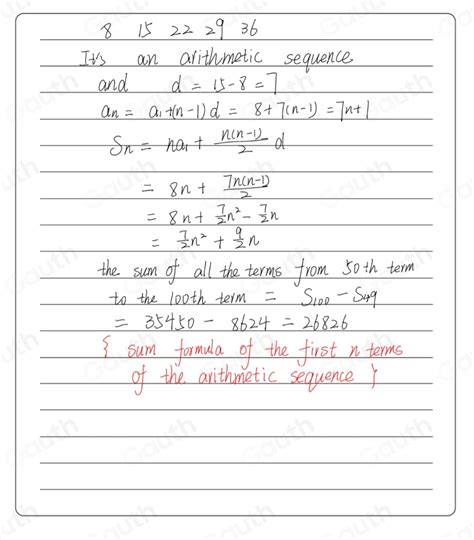 8 15 22 29 36
It's an arithmetic sequence
and d = 15-8 = 7
an = a1+(n-1)d = 8+7(n-1) = 7n+1
Sn = na1 + n(n-1)/2 d
= 8n + 7n(n-1)/2
= 8n + 7/2n² - 7/2n
= 7/2n² + 9/2n
the sum of all the terms from 50th term
to the 100th term = S100 - S49
= 35450 - 8624 = 26826
{ sum formula of the first n terms
of the arithmetic sequence }
Gauth